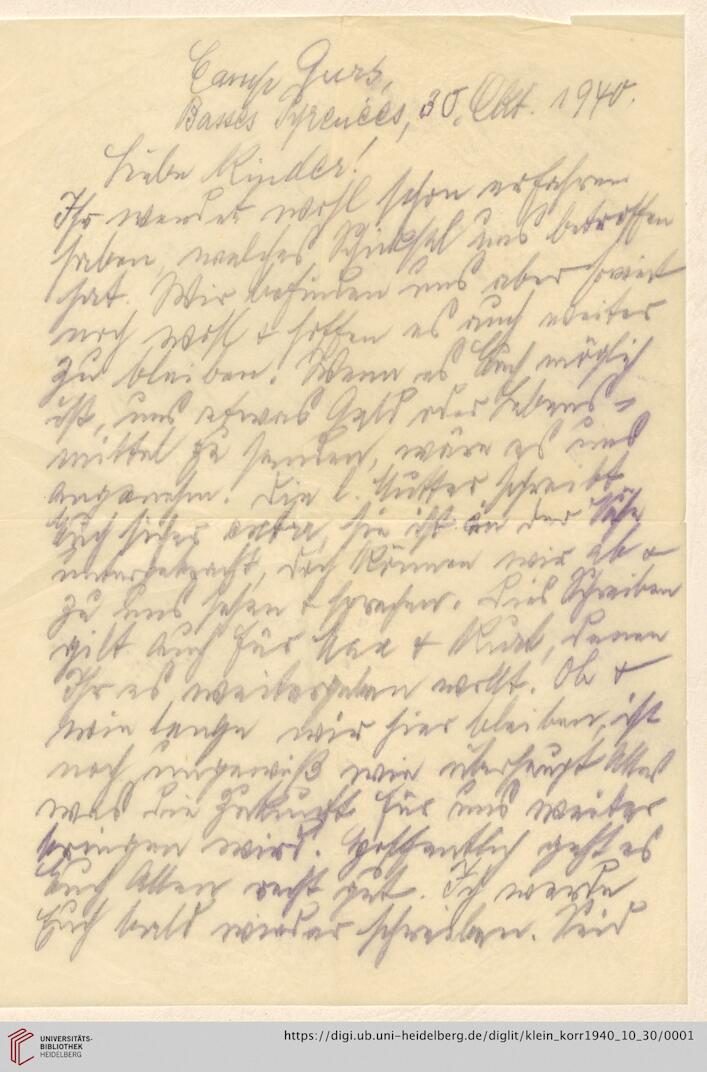 Camp Gurs,
Basses Pyrenées, 30. Okt. 1940.
Liebe Kinder!
Ihr werdet wohl schon erfahren
haben, welches Schicksal uns betroffen
hat. Wir befinden uns aber soweit
noch wohl & hoffen es auch weiter
zu bleiben. Wenn es Euch möglich
ist, uns etwas Geld oder Lebens-
mittel zu senden, wäre es uns
angenehm. Die l. Mutter schreibt
Euch sicher extra, sie ist in der Nähe
untergebracht, doch können wir ab &
zu uns sehen & sprechen. Dies Schreiben
gilt auch für Max & Kurt, denen
Ihr es weitergeben wollt. Ob &
wie lange wir hier bleiben, ist
noch ungewiß wie überhaupt Alles
was die Zukunft für uns weiter
bringen wird. Hoffentlich geht es
Euch Allen recht gut. Ich werde
Euch bald wieder schreiben. Seid
UNIVERSITÄTS-
BIBLIOTHEK
HEIDELBERG
https://digi.ub.uni-heidelberg.de/diglit/klein_korr1940_10_30/0001